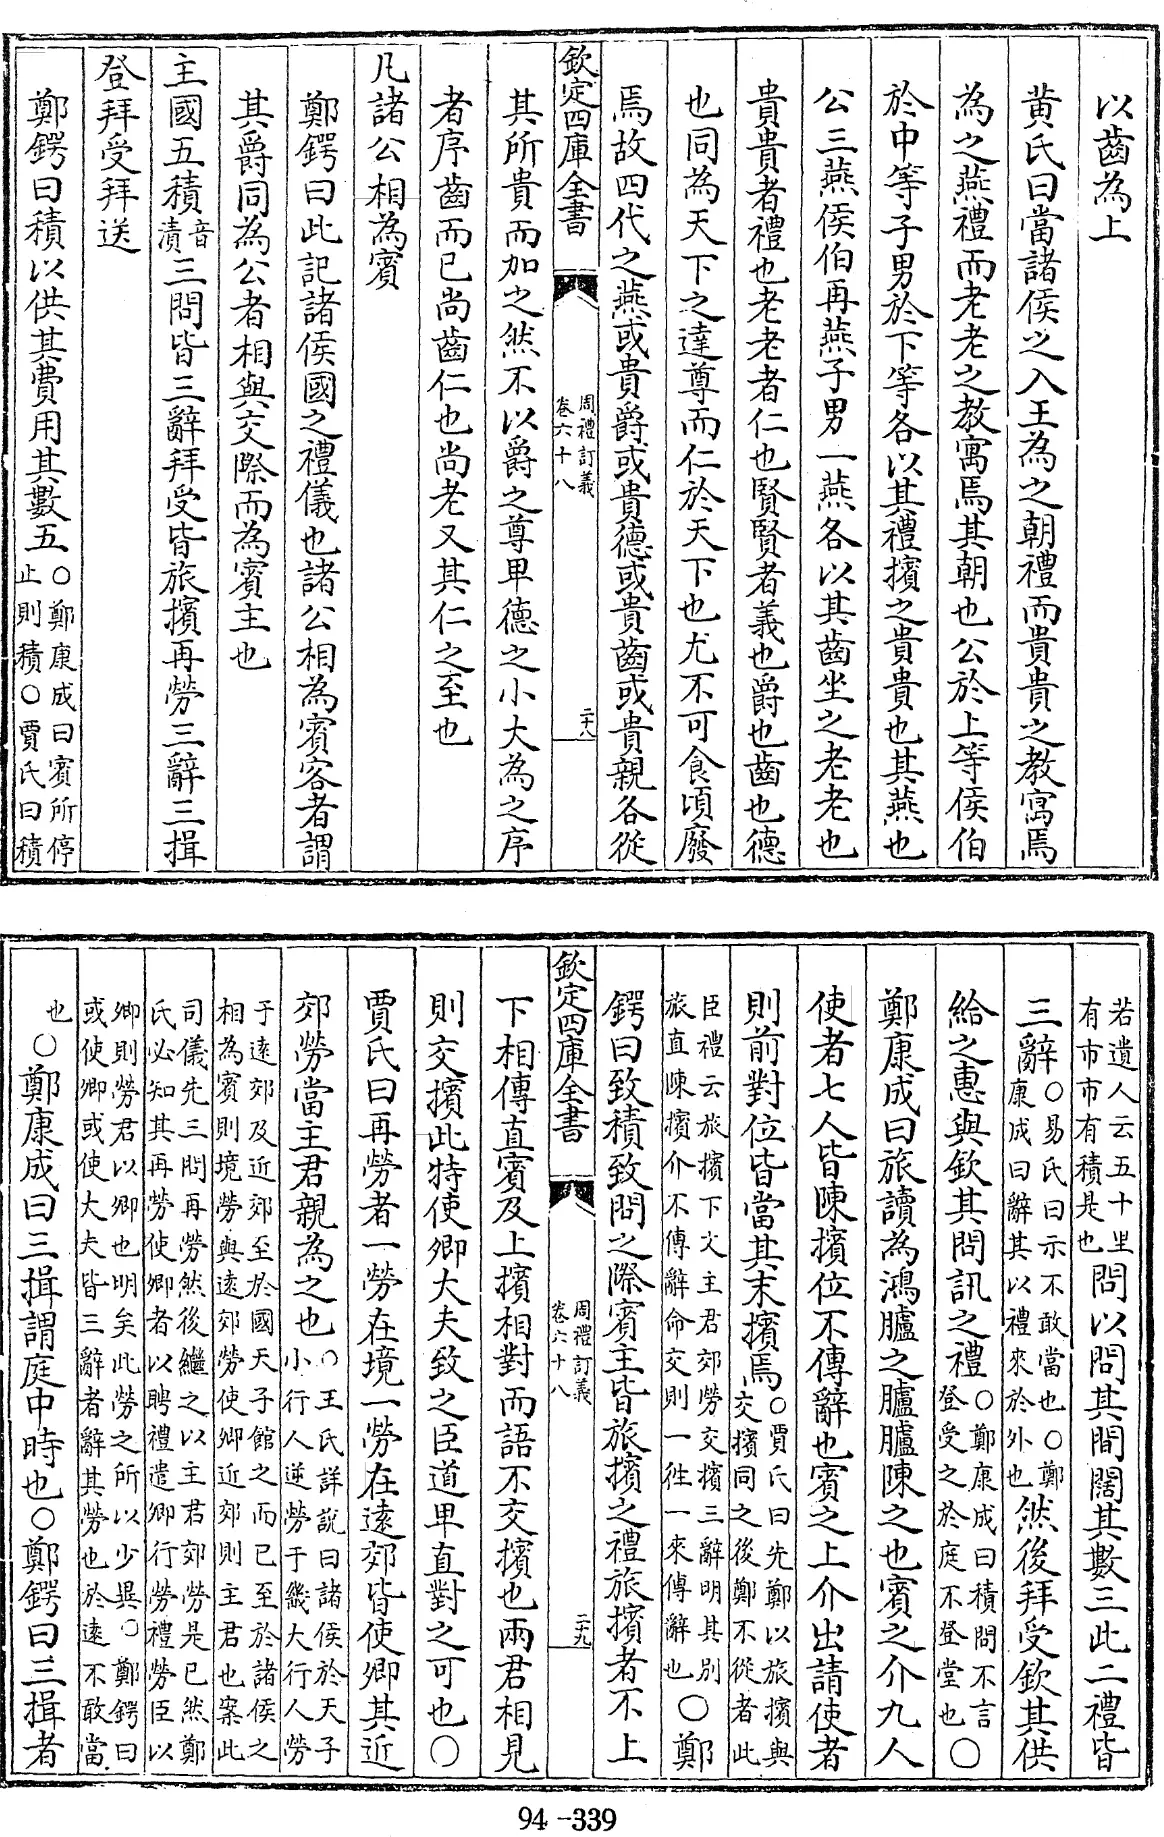 以齒為上
黄氏曰當諸侯之入王為之朝禮而貴貴之教寓焉
為之燕禮而老老之教寓焉其朝也公於上等侯伯
於中等子男於下等各以其禮擯之貴貴也其燕也
公三燕侯伯再燕子男一燕各以其齒坐之老老也
貴貴者禮也老老者仁也賢賢者義也爵也齒也德
也同為天下之達尊而仁於天下也尤不可食頃廢
焉故四代之燕或貴爵或貴德或貴齒或貴親各從
欽定四庫全書
周禮訂義
卷六十八
二十八
其所貴而加之然不以爵之尊卑德之小大為之序
者序齒而已尚齒仁也尚老又其仁之至也
凡諸公相為賓
鄭鍔曰此記諸侯國之禮儀也諸公相為賓客者謂
其爵同為公者相與交際而為賓主也
主國五積音
漬三問皆三辭拜受皆旅擯再勞三辭三揖
登拜受拜送
鄭鍔曰積以供其費用其數五○鄭康成曰賓所停
止則積○賈氏曰積
若遺人云五十里
有市市有積是也問以問其間闊其數三此二禮皆
三辭○易氏曰示不敢當也○鄭
康成曰辭其以禮來於外也然後拜受欽其供
給之惠與欽其問訊之禮○鄭康成曰積問不言
登受之於庭不登堂也○
鄭康成曰旅讀為鴻臚之臚臚陳之也賓之介九人
使者七人皆陳擯位不傳辭也賓之上介出請使者
則前對位皆當其末擯焉○賈氏曰先鄭以旅擯與
交擯同之後鄭不從者此
臣禮云旅擯下文主君郊勞交擯三辭明其別
旅直陳擯介不傳辭命交則一往一來傳辭也○鄭
鍔曰致積致問之際賓主皆旅擯之禮旅擯者不上
欽定四庫全書
周禮訂義
卷六十八
二十九
下相傳直賓及上擯相對而語不交擯也兩君相見
則交擯此特使卿大夫致之臣道卑直對之可也○
賈氏曰再勞者一勞在境一勞在遠郊皆使卿其近
郊勞當主君親為之也○王氏詳說曰諸侯於天子
小行人逆勞于畿大行人勞
于遠郊及近郊至於國天子館之而已至於諸侯之
相為賓則境勞與遠郊勞使卿近郊則主君也案此
司儀先三問再勞然後繼之以主君郊勞是已然鄭
氏必知其再勞使卿者以聘禮遣卿行勞禮勞臣以
卿則勞君以卿也明矣此勞之所以少異○鄭鍔曰
或使卿或使大夫皆三辭者辭其勞也於遠不敢當
也○鄭康成曰三揖謂庭中時也○鄭鍔曰三揖者
94-339